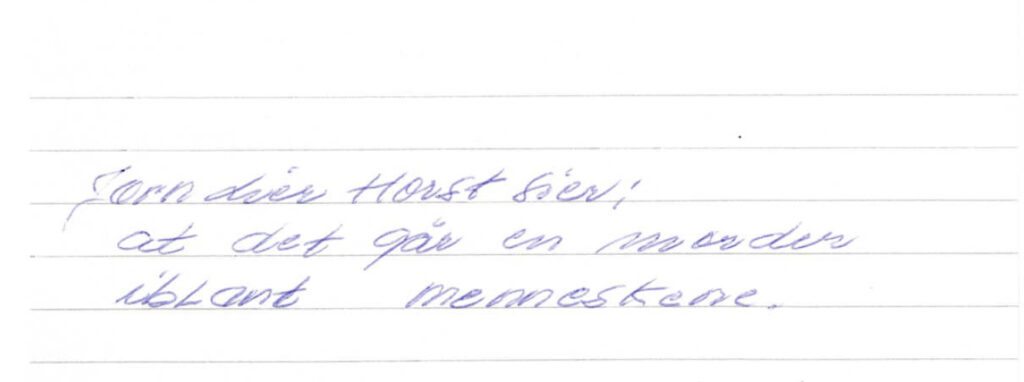 Jorn dier Horst sier;
at det går en morder
iblant menneskene.